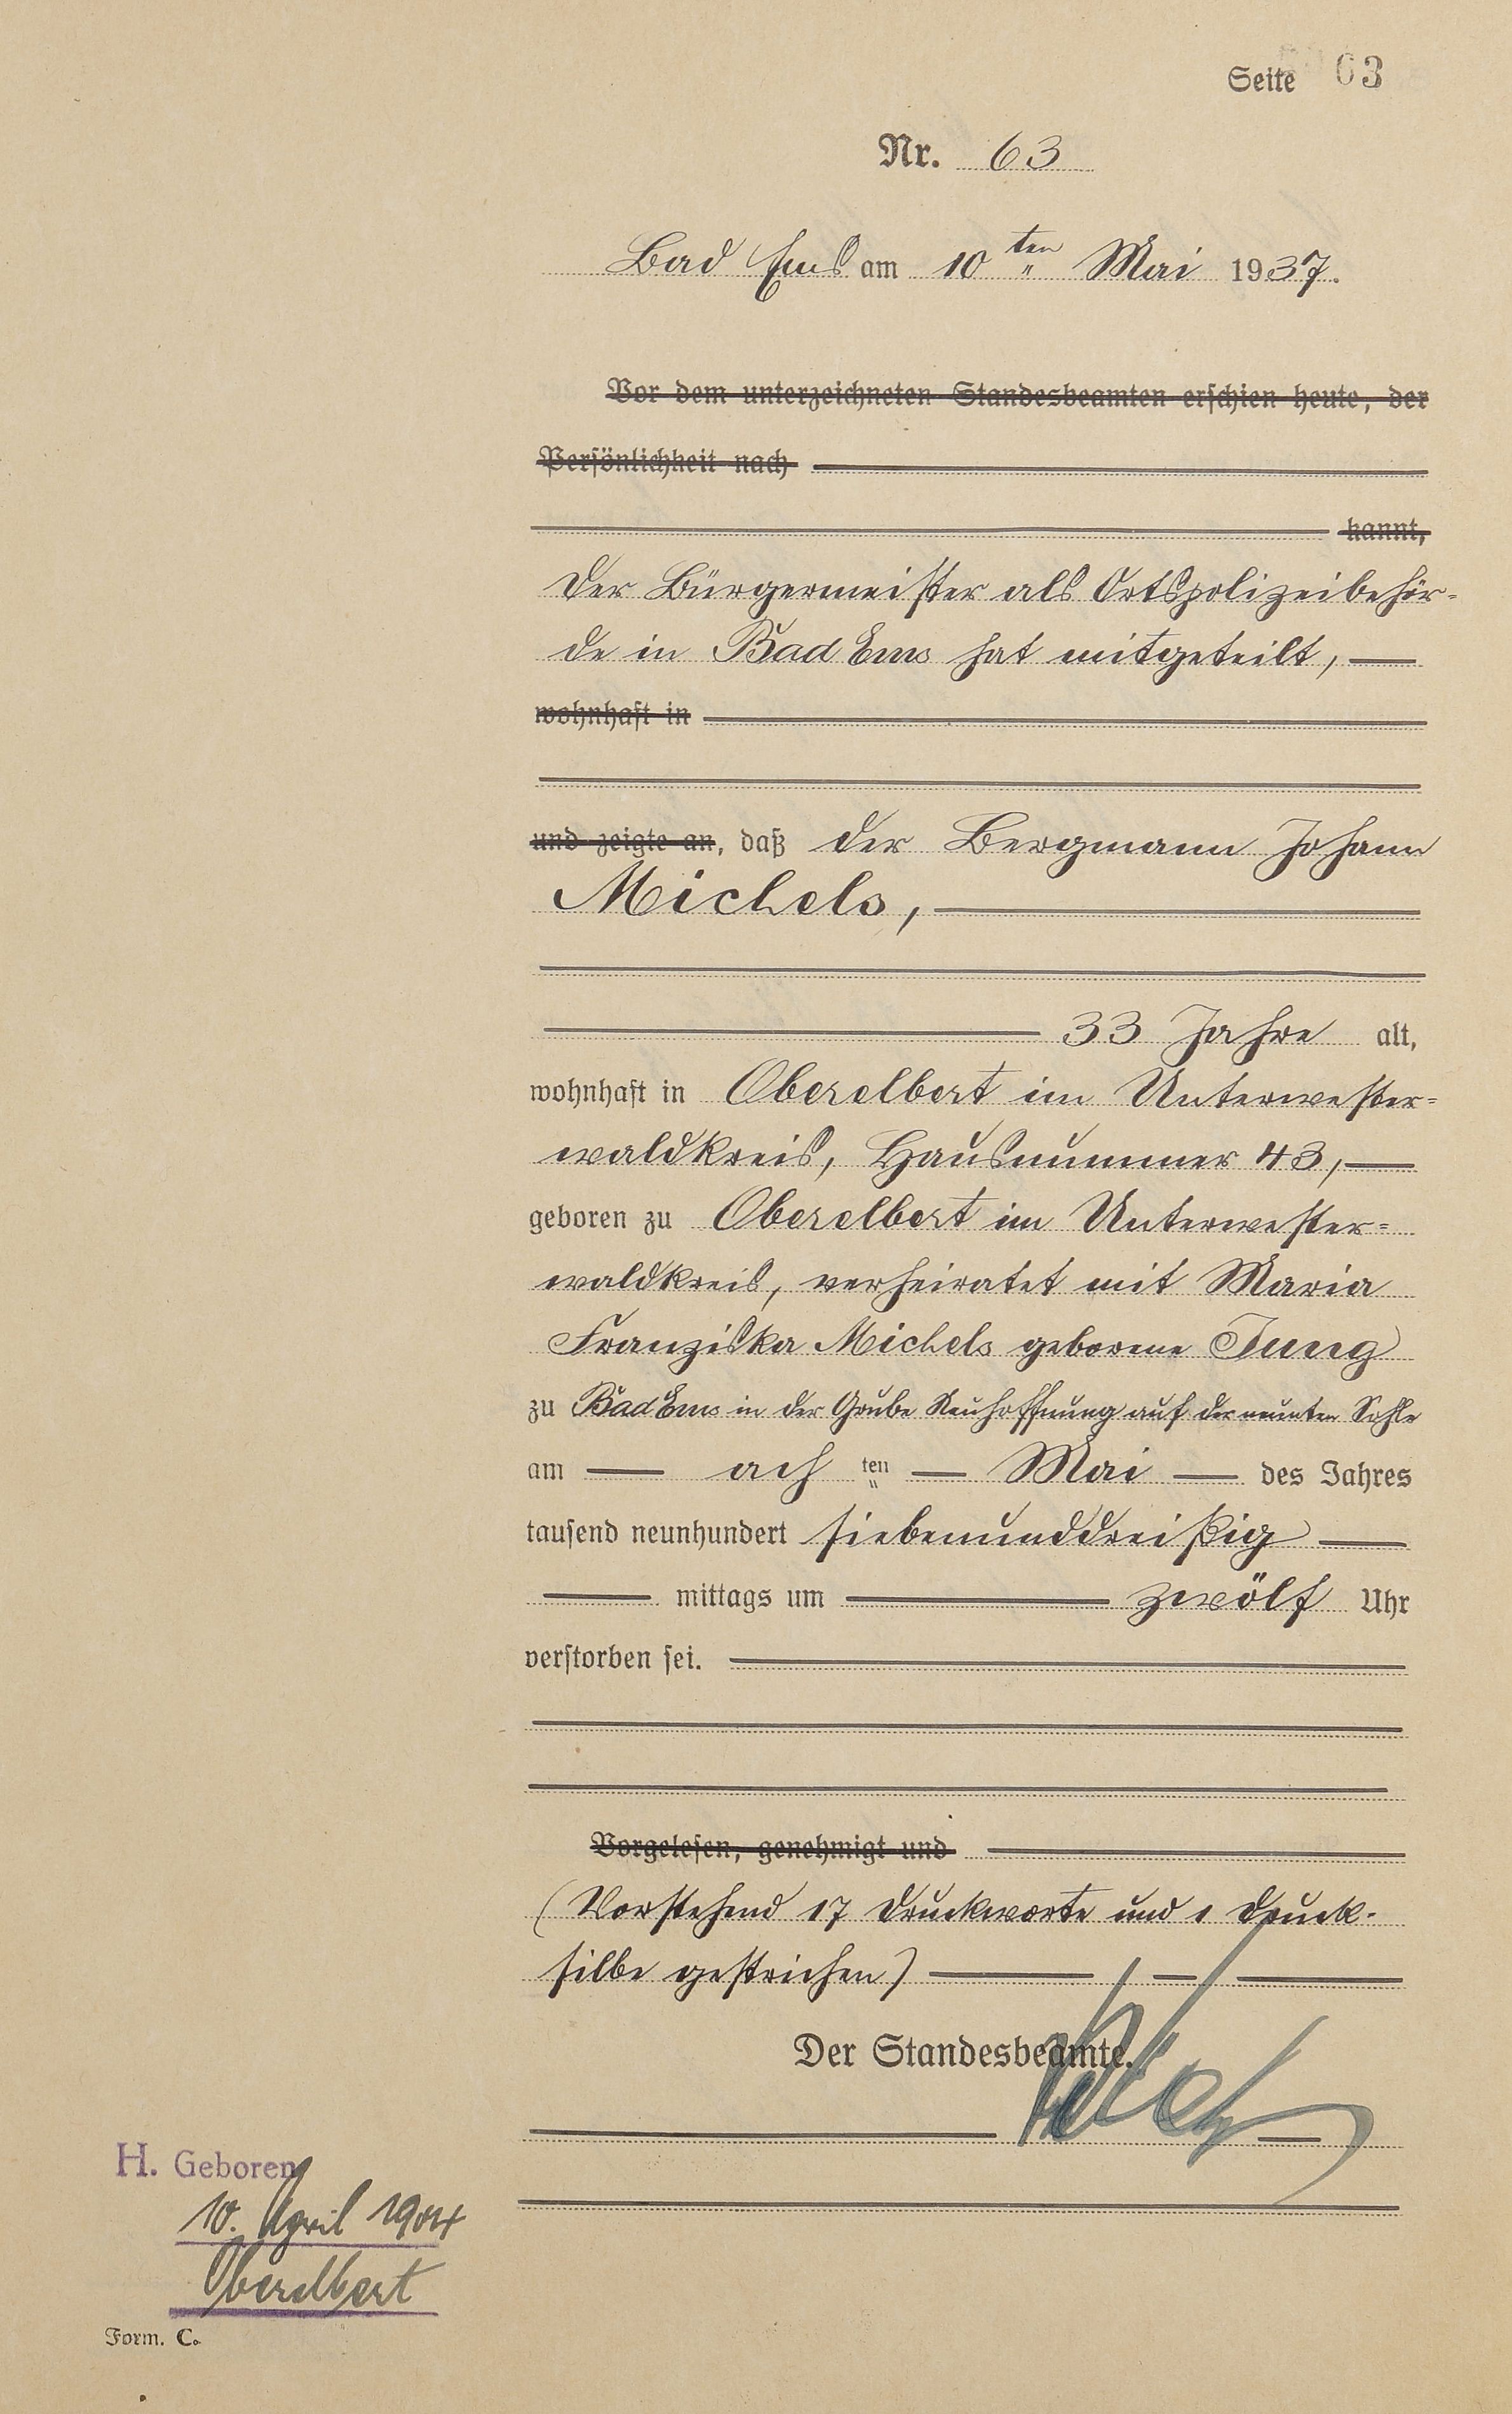 Seite 63
Nr. 63
Bad Ems am 10ten Mai 1937.
Vor dem unterzeichneten Standesbeamten erschien heute, der
Persönlichkeit nach
kannt,
Der Bürgermeister als Ortspolizeibehör-
de in Bad Ems hat mitgeteilt,
wohnhaft in
und zeigte an, daß der Bergmann Johann
Michels,
33 Jahre alt,
wohnhaft in Oberelbert im Unterwester-
waldkreis, Hausnummer 43,
geboren zu Oberelbert im Unterwester-
waldkreis, verheiratet mit Maria
Franziska Michels geborene Jung
zu Bad Ems in der Grube Neuhoffnung auf der neunten Sohle
am ach ten Mai des Jahres
tausend neunhundert siebenunddreißig
mittags um zwölf Uhr
verstorben sei.
Vorgelesen, genehmigt und
(Vorstehend 17 Druckworte und 1 Druck-
silbe gestrichen)
Der Standesbeamte.
H. Geboren
10. April 1904
Oberelbert
Form. C.